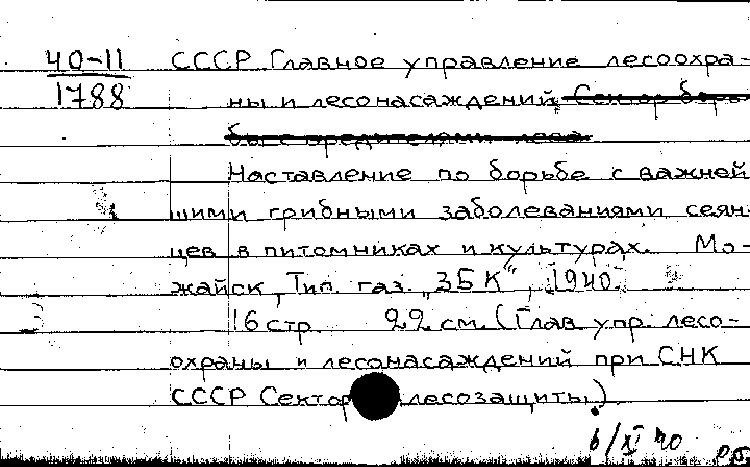 40-11 СССР Главное управление лесоохра-
1788 ны и лесонасаждений, Сектор борь-
бы с вредителями леса
Наставление по борьбе с важней
шими грибными заболеваниями сеян-
цев в питомниках и культурах. Мо-
жайск, Тип. газ. „ЗБК“, 1940.
16 стр. 22 см. (Глав. упр. лесо-
охраны и лесонасаждений при СНК
СССР Сектор лесозащиты.)
6/XI 40